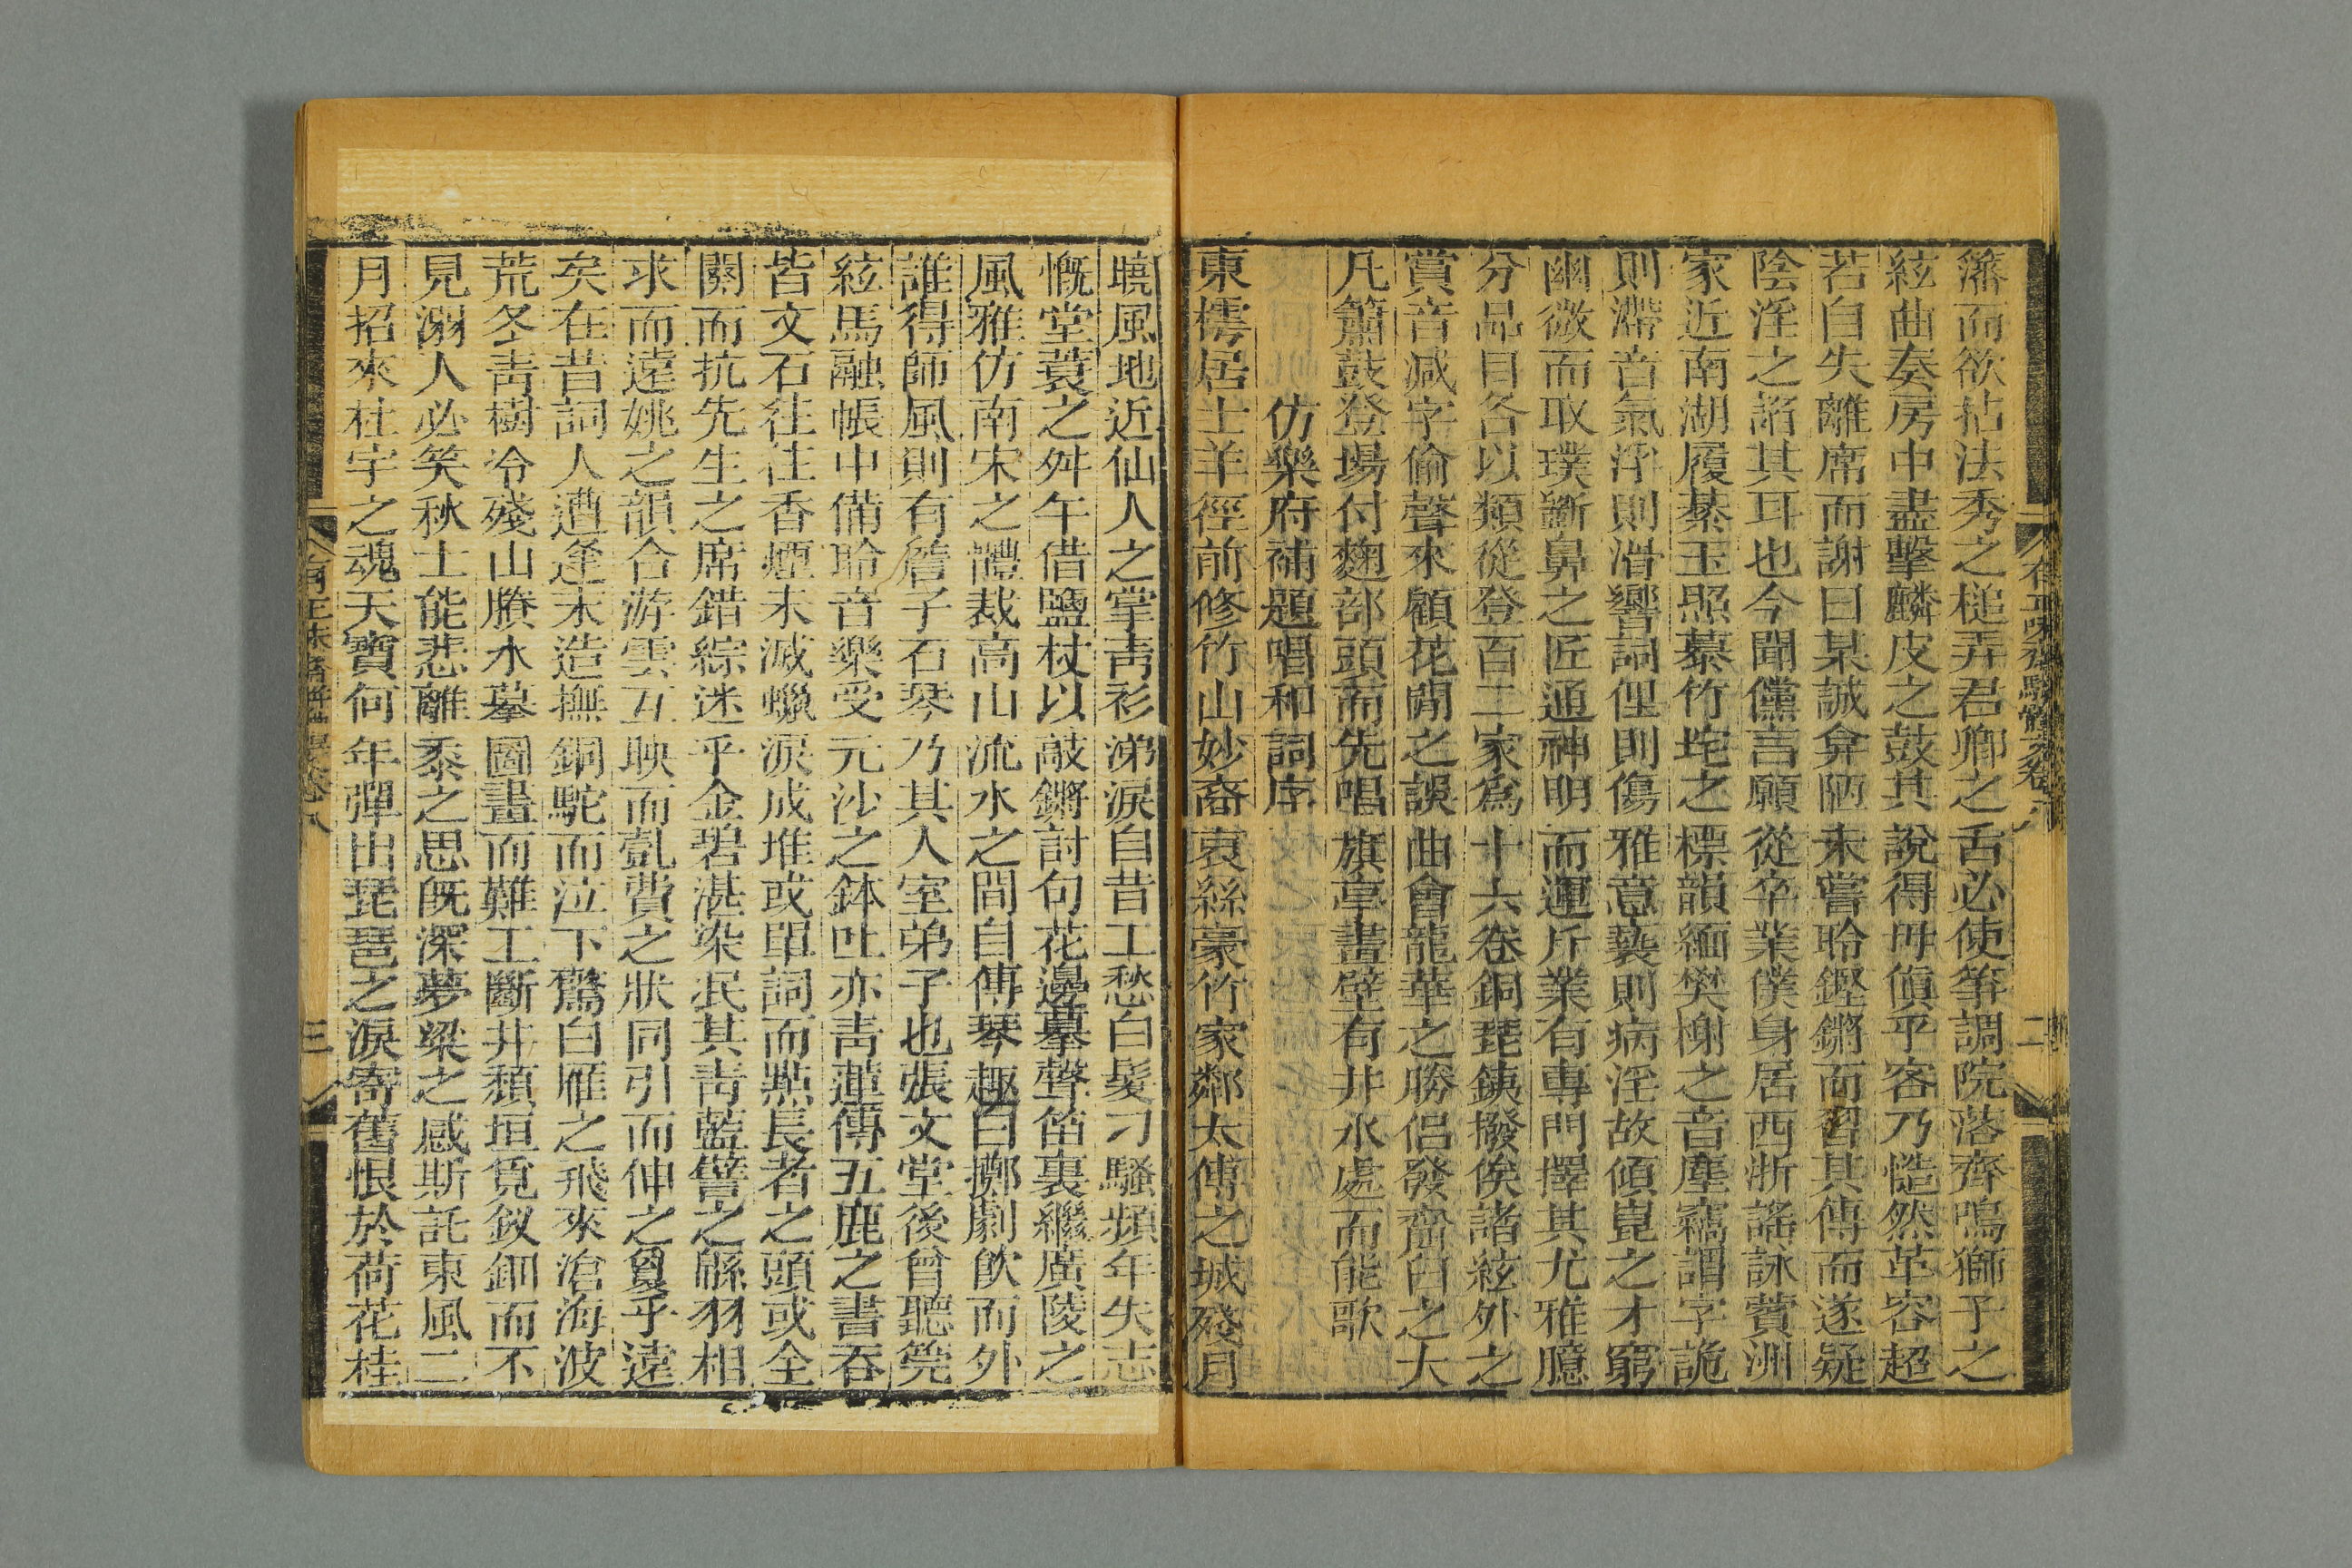 籓而欲拈法秀之槌弄君卿之舌必使箏調院落齊鳴獅子之
絃曲奏房中盡擊麟皮之鼓其說得毋傎乎客乃愷然革容超
若自失離席而謝曰某誠弇陋未嘗聆鏗鏘而習其傳而遂疑
陰淫之謟其耳也今聞儻言願從卒業僕身居西浙謠詠薲洲
家近南湖履綦玉照慕竹垞之標韻緬樊榭之音塵竊謂字詭
則滯音氣浮則滑響詞俚則傷雅意褻則病淫故傾崑之才窮
幽微而取璞斷鼻之匠通神明而運斤業有專門擇其尤雅臆
分品目各以類從登百二家爲十六卷銅琵鐵撥俟諸絃外之
賞音減字偷聲來顧花閒之誤曲會龍華之勝侶發齋臼之大
凡簫鼓登場付麴部頭而先唱旗亭畫壁有井水處而能歌
仿樂府補題唱和詞序
東樗居士羊徑前修竹山妙裔哀絲豪竹家鄰太傅之城殘月
曉風地近仙人之掌靑衫涕淚自昔工愁白髮刁騷頻年失志
慨堂蓑之舛午借鹽杖以敲鏘討句花邊摹聲笛裏繼廣陵之
風雅仿南宋之體裁高山流水之間自傳琴趣曰擲劇飲而外
誰得師風則有詹子石琴乃其人室弟子也張文堂後曾聽筦
絃馬融帳中備聆音樂受元沙之鉢吐亦靑蓮傳五鹿之書吞
皆文石往往香煙未滅蠟淚成堆或單詞而點長者之頭或全
闋而抗先生之席錯綜迷乎金碧湛染泯其靑藍譬之鶼羽相
求而遠姚之韻合游雲互映而氄費之狀同引而伸之夐乎遠
矣在昔詞人遭逢末造撫銅駝而泣下驚白雁之飛來滄海波
荒冬靑樹冷殘山賸水摹圖畫而難工斷井頹垣覓釵鈿而不
見溺人必笑秋士能悲離黍之思旣深夢梁之感斯託東風二
月招來杜宇之魂天寶何年彈出琵琶之淚寄舊恨於荷花桂
有正味齋駢體文卷八
二
三